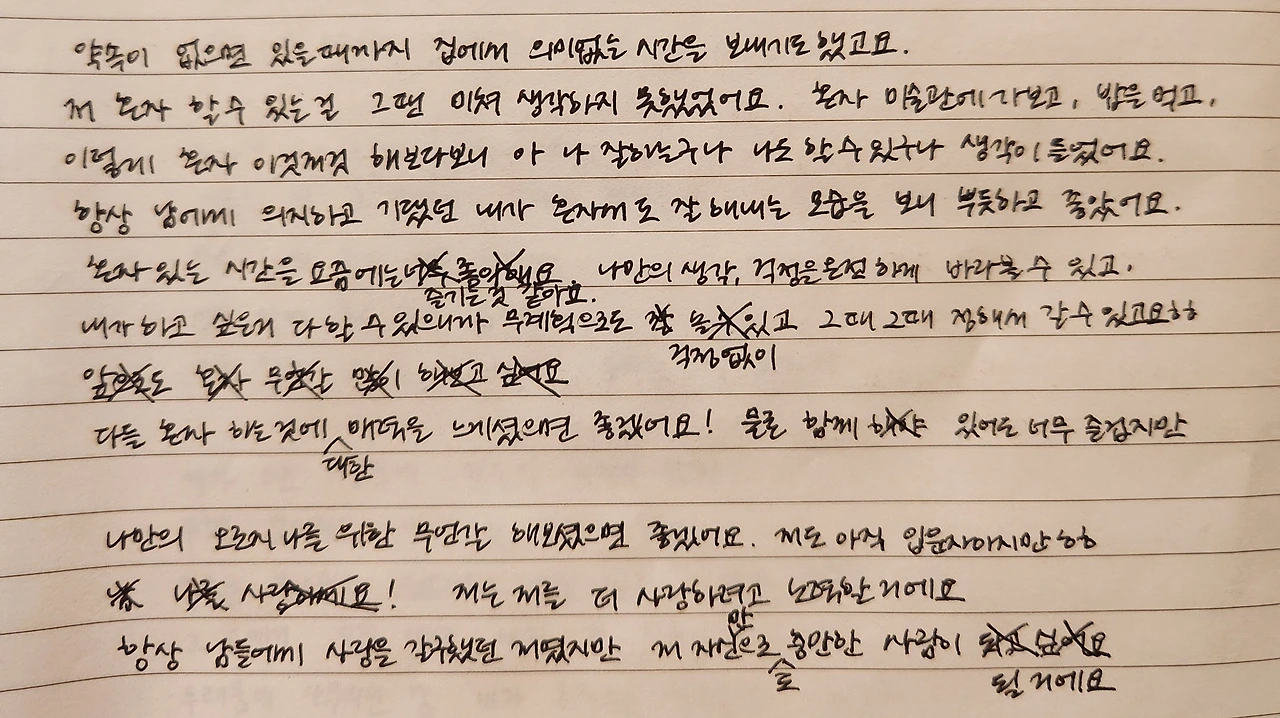 약속이 없으면 있을때까지 집에서 의미없는 시간을 보내기도 했고요.
저 혼자 할 수 있는걸 그땐 미쳐 생각하지 못했었어요. 혼자 미술관에 가보고, 밥을 먹고,
이렇게 혼자 이것저것 해보다보니 아 나 잘하는구나 나도 할 수 있구나 생각이 들었어요.
항상 남에게 의지하고 기댔던 내가 혼자서도 잘 해내는 모습을 보니 뿌듯하고 좋았어요.
혼자 있는 시간을 요즘에는 너무 좋아해요 나만의 생각, 걱정을 온전하게 바라볼 수 있고.
즐기는 것 같아요.
내가 하고 싶은거 다 할 수 있으니까 무계획으로도 놀 수 있고 그때 그때 정해서 갈 수 있고요ㅎㅎ
걱정없이
앞으로도 혼자 무언가 많이 해보고 싶어요
다들 혼자 하는것에 매력을 느끼셨으면 좋겠어요! 물론 함께 해야 있어도 너무 즐겁지만
대한
나만의 오로지 나를 위한 무언갈 해보셨으면 좋겠어요. 저도 아직 입문자이지만ㅎㅎ
나를 사랑하세요! 저는 저를 더 사랑하려고 노력할거에요
만
항상 남들에게 사랑을 갈구했던 저였지만 저 자신으로 충만한 사람이 되고 싶어요
으로 될거에요